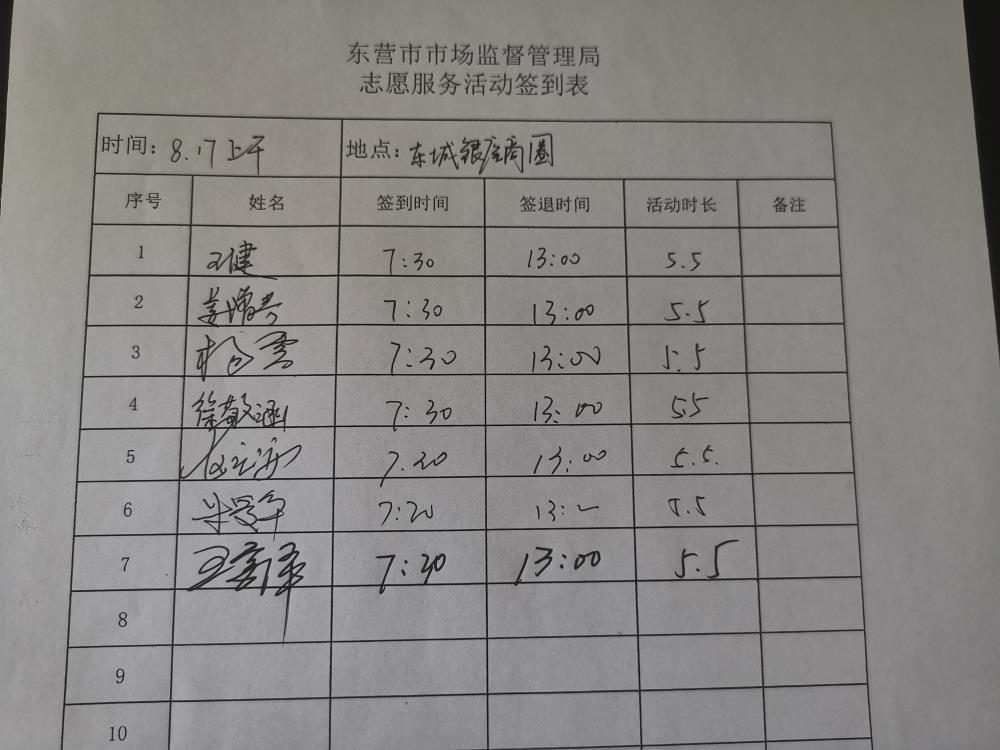 东营市市场监督管理局
志愿服务活动签到表
时间：8.17上午 地点：东城银座商圈
序号 姓名 签到时间 签退时间 活动时长 备注
1 王健 7:30 13:00 5.5
2 姜增 7:30 13:00 5.5
3 杨雪 7:30 13:00 5.5
4 徐敬涵 7:30 13:00 5.5
5 7.30 13:00 5.5.
6 7:20 13: 5.5
7 王 7:30 13:00 5.5
8
9
10